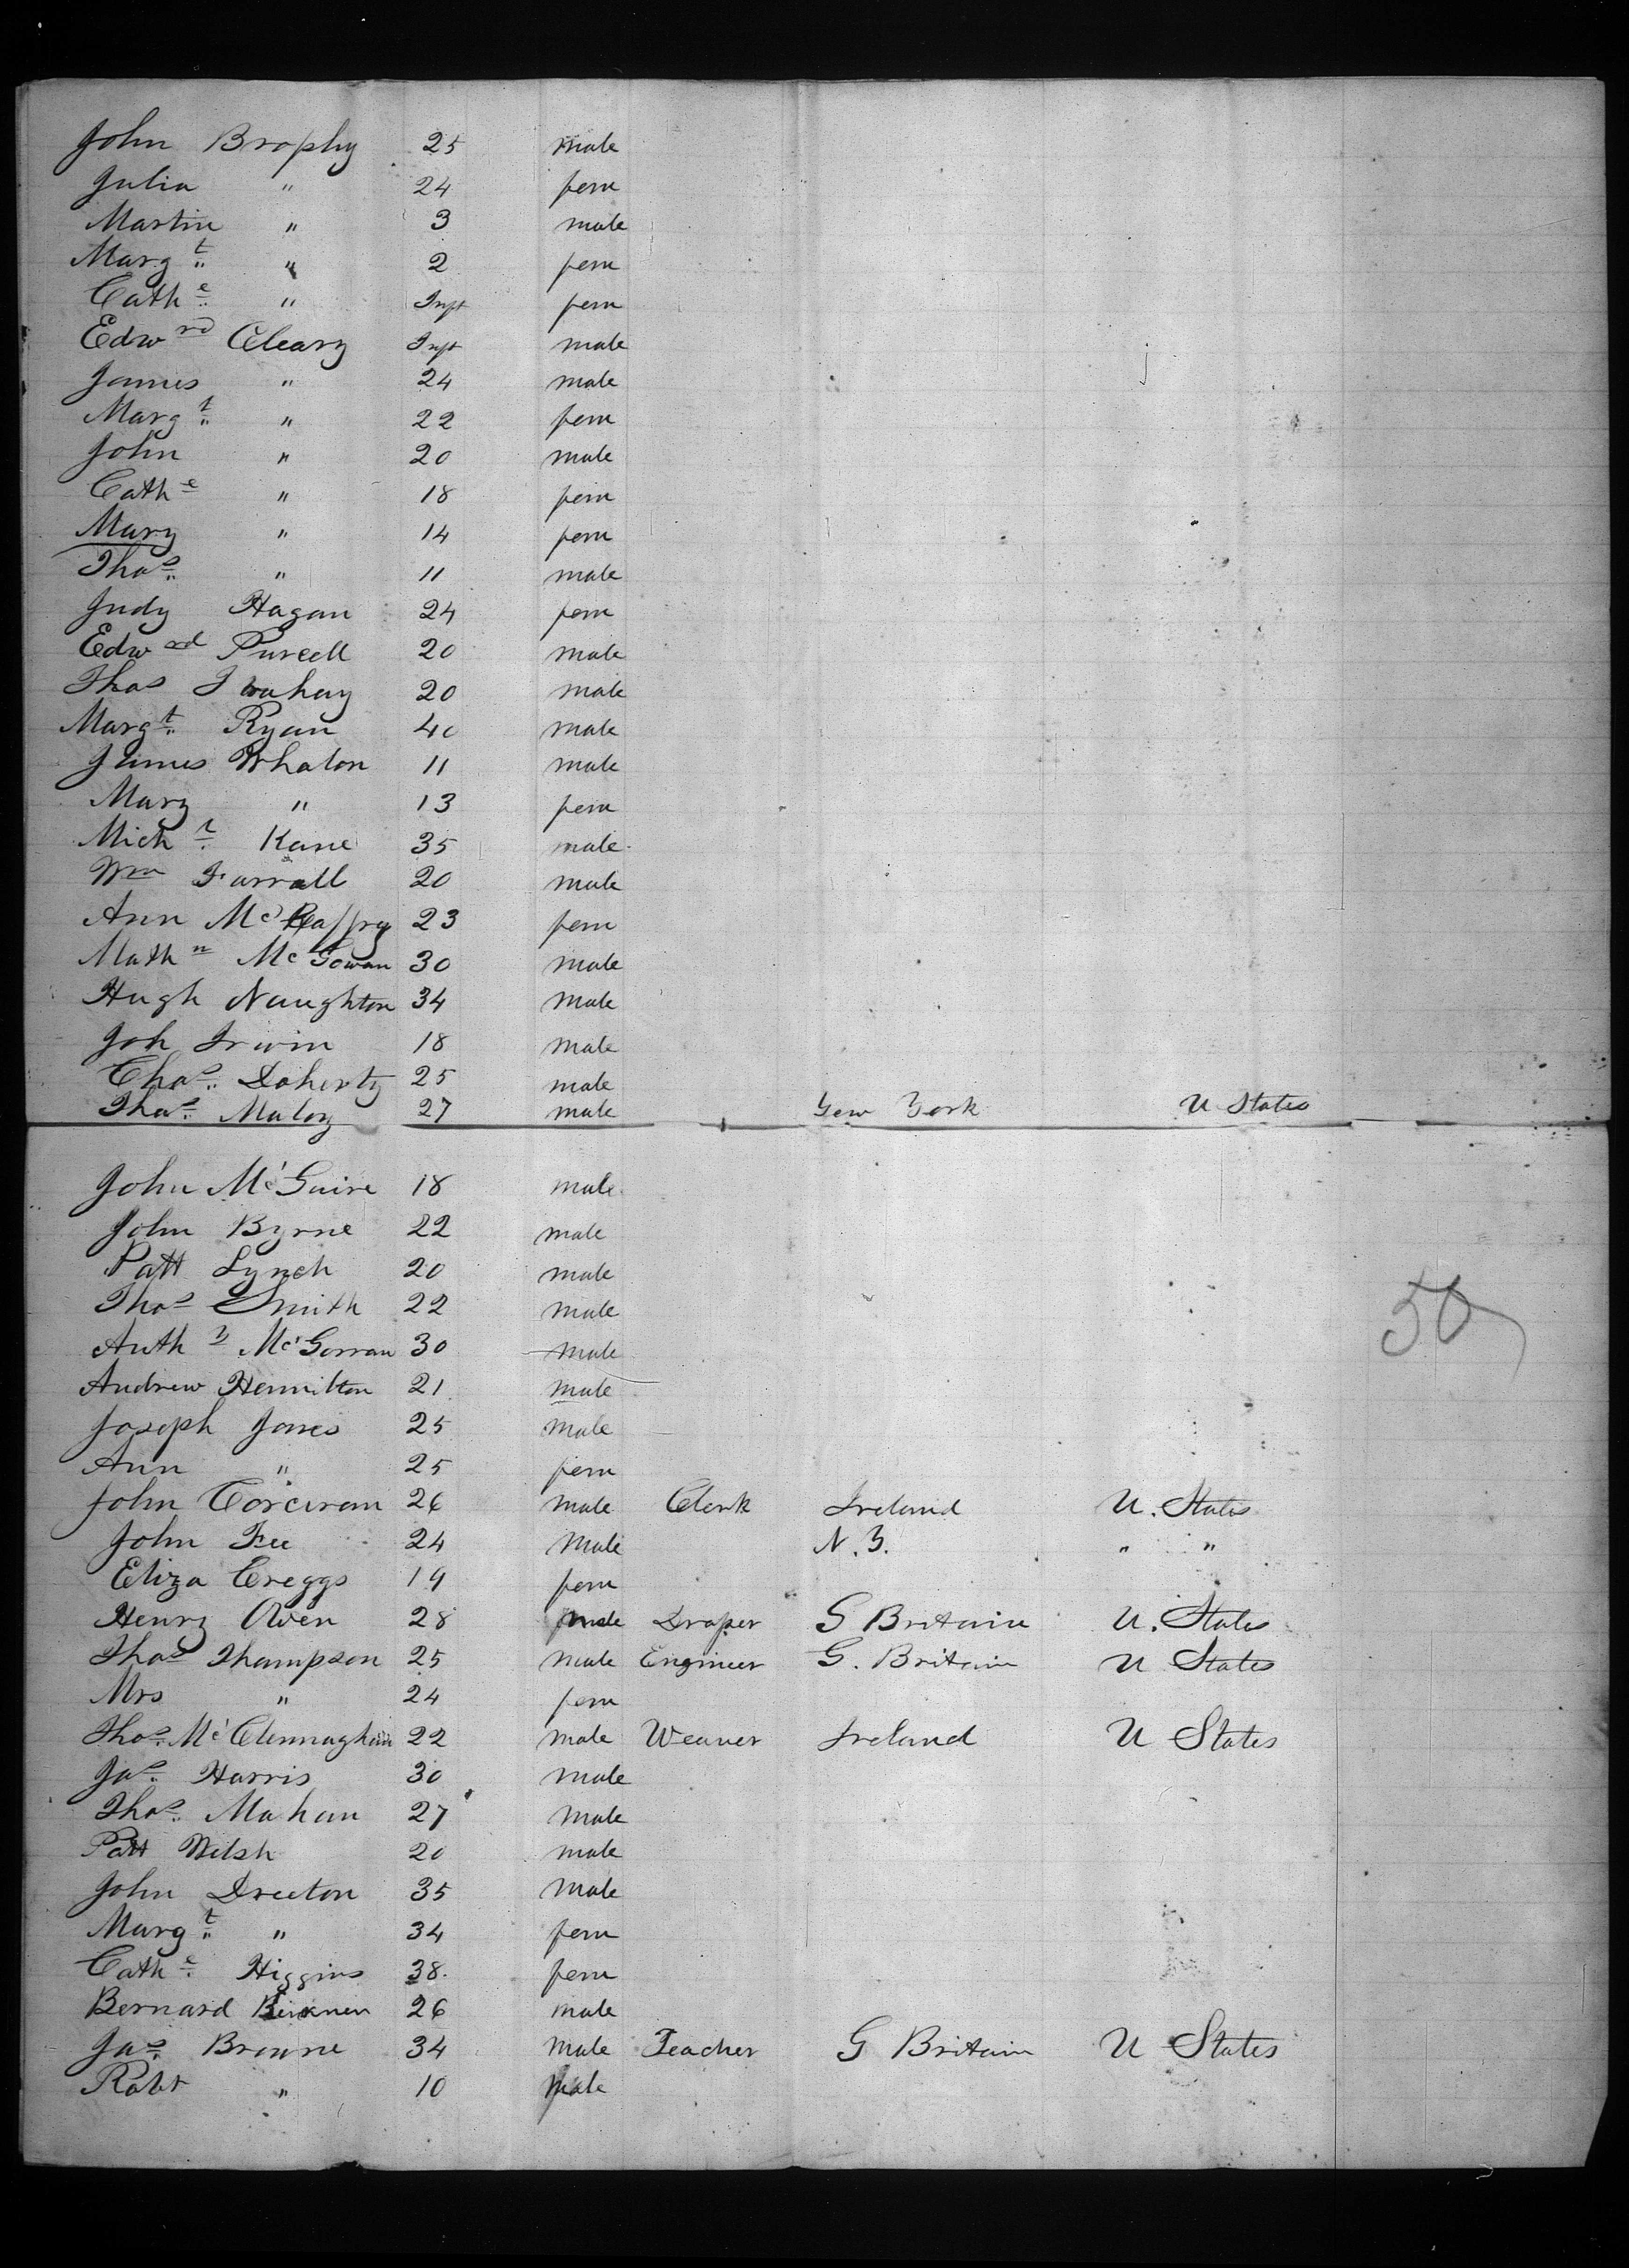 John Brophy 25 male
Julia " 24 fem
Martin " 3 male
Margt " 2 fem
Cathe " Inft fem
Edwrd Cleary Inft male
James " 24 male
Margt " 22 fem
John " 20 male
Cathe " 18 fem
Mary " 14 fem
Thos " 11 male
Judy Hagan 24 fem
Edwad Purcell 20 male
Thos 20 male
Margt Ryan 40 male
James Whalon 11 male
Mary " 13 fem
Michl Kane 35 male
Wm Farrall 20 male
Ann 23 fem
Mathw McGowan 30 male
Hugh Naughton 34 male
Joh Irwin 18 male
Chas Doherty 25 male
Thos Maloy 27 male York U States
John McGuire 18 male
John Byrne 22 male
Patt Lynch 20 male
Thos Smith 22 male
Anthy McGorran 30 male
Andrew Hemilton 21 male
Joseph Jones 25 male
Ann " 25 fem
John Corciran 26 male Clerk Ireland U. States
John Fee 24 male N.Y. " "
Eliza Creggs 19 fem
Henry Owen 28 male Draper G Britain U. States
Thos Thompson 25 male Engineer G. Britain U States
Mrs " 24 fem
Thos McClennaghan 22 male Weaver Ireland U States
Jas Harris 30 male
Thos Mahan 27 male
Patt Welsh 20 male
John Dreeton 35 male
Margt " 34 fem
Cathe Higgins 38 fem
Bernard 26 male
Jas Browne 34 male Teacher G Britain U States
Robt " 10 male
50